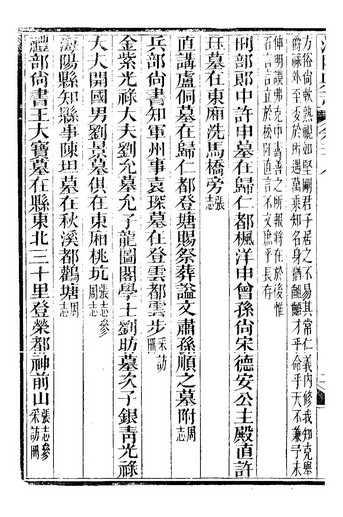 方俗尚欹熟視如堅剛君子居之不易其常仁義內修我知克舉
爵祿外至委於所遇萬乘知名身猶齟齬才乎命乎天不兼予未
伸明謨弗克中壽善之所報將在於後惟
若吉言立於松阡直言不文庶乎長存
刑部郎中許申墓在歸仁都楓洋申曾孫尚宋德安公主殿直許
珏墓在東廂洗馬橋旁張志
直講盧侗墓在歸仁都登塘賜祭葬諡文肅孫順之墓附周志
兵部尚書知軍州事袁琛墓在登雲都雲步采訪冊
金紫光祿大夫劉允墓允子龍圖閣學士劉昉墓次子銀青光祿
大夫開國男劉景墓俱在東廂桃坑張志參周志
海陽縣知縣事陳坦墓在秋溪都鸛塘周志
禮部尚書王大寶墓在縣東北三十里登榮都神前山張志參采訪冊